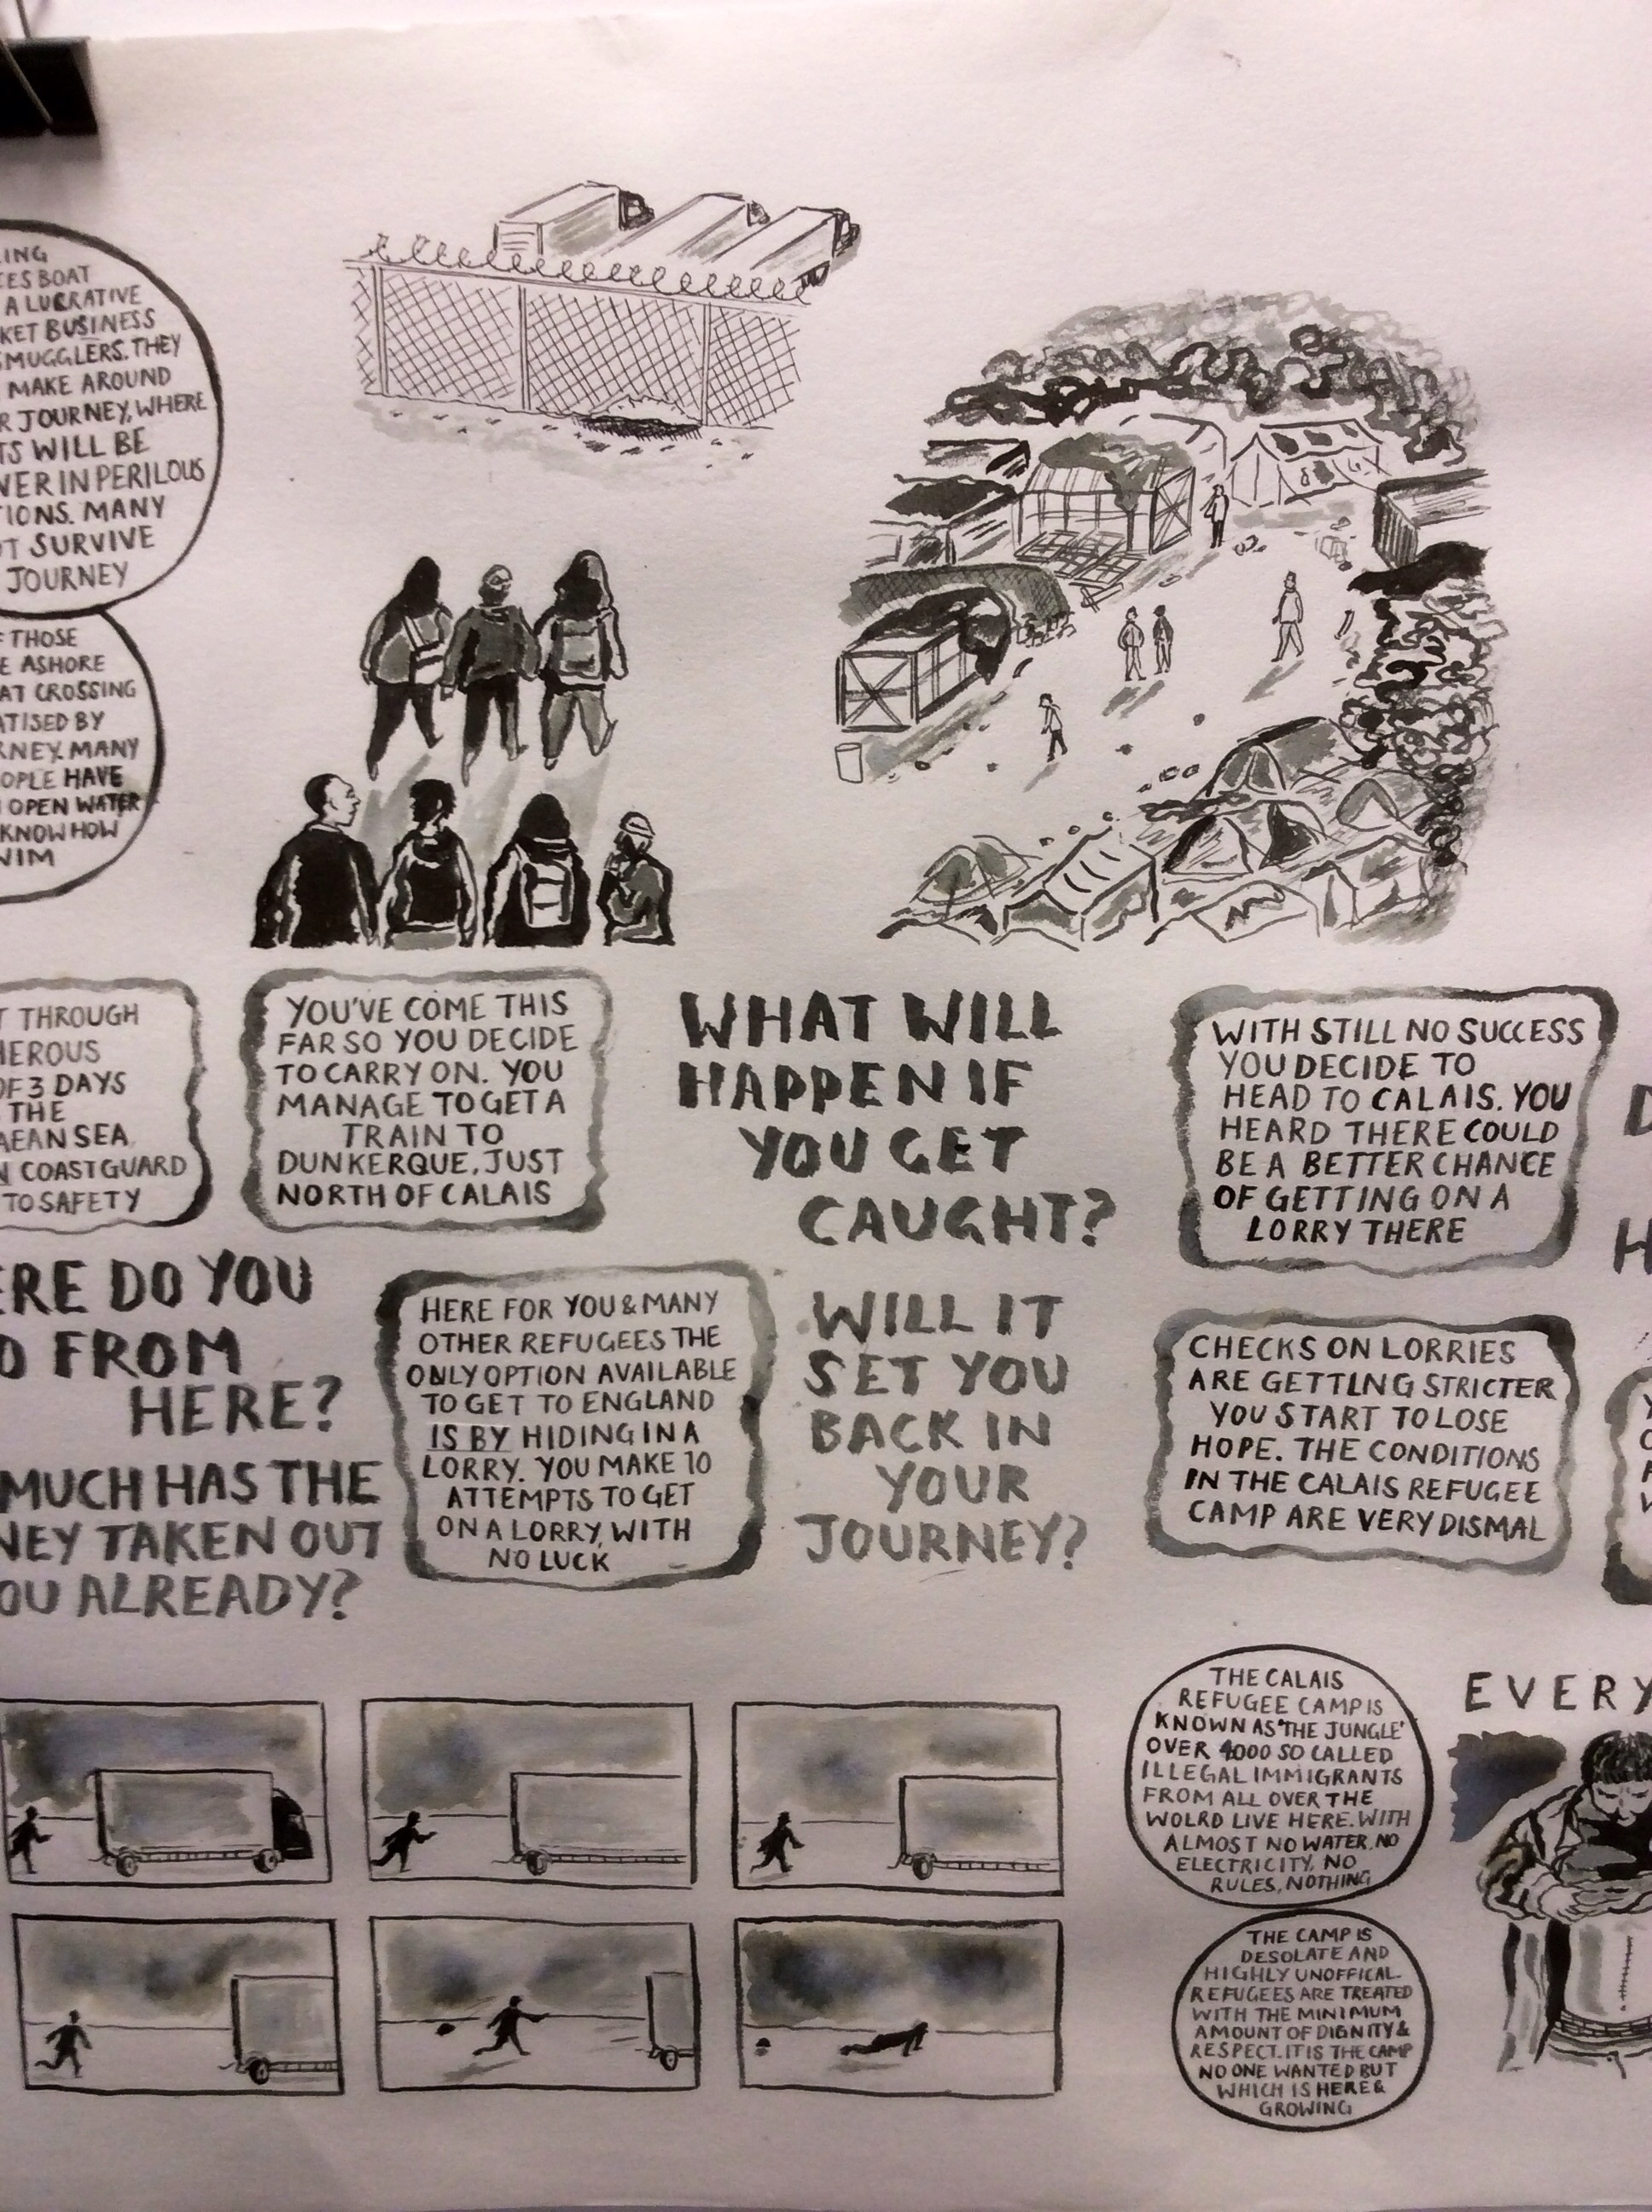 BOAT
A LUCRATIVE
BUSINESS
SMUGGLERS. THEY
MAKE AROUND
JOURNEY, WHERE
WILL BE
IN PERILOUS
MANY
SURVIVE
JOURNEY
THOSE
ASHORE
CROSSING
BY
MANY
HAVE
OPEN WATER
KNOW HOW
THROUGH
OF 3 DAYS
THE
SEA
COASTGUARD
TO SAFETY
YOU'VE COME THIS
FAR SO YOU DECIDE
TO CARRY ON. YOU
MANAGE TO GET A
TRAIN TO
DUNKERQUE, JUST
NORTH OF CALAIS
WHAT WILL
HAPPEN IF
YOU GET
CAUGHT?
WITH STILL NO SUCCESS
YOU DECIDE TO
HEAD TO CALAIS. YOU
HEARD THERE COULD
BE A BETTER CHANCE
OF GETTING ON A
LORRY THERE
DO YOU
FROM
HERE?
MUCH HAS THE
TAKEN OUT
ALREADY?
HERE FOR YOU & MANY
OTHER REFUGEES THE
ONLY OPTION AVAILABLE
TO GET TO ENGLAND
IS BY HIDING IN A
LORRY. YOU MAKE 10
ATTEMPTS TO GET
ON A LORRY, WITH
NO LUCK
WILL IT
SET YOU
BACK IN
YOUR
JOURNEY?
CHECKS ON LORRIES
ARE GETTING STRICTER
YOU START TO LOSE
HOPE. THE CONDITIONS
IN THE CALAIS REFUGEE
CAMP ARE VERY DISMAL
THE CALAIS
REFUGEE CAMP IS
KNOWN AS 'THE JUNGLE'
OVER 4000 SO CALLED
ILLEGAL IMMIGRANTS
FROM ALL OVER THE
WOLRD LIVE HERE. WITH
ALMOST NO WATER, NO
ELECTRICITY, NO
RULES, NOTHING
EVERY
THE CAMP IS
DESOLATE AND
HIGHLY UNOFFICAL.
REFUGEES ARE TREATED
WITH THE MINIMUM
AMOUNT OF DIGNITY &
RESPECT. IT IS THE CAMP
NO ONE WANTED BUT
WHICH IS HERE &
GROWING